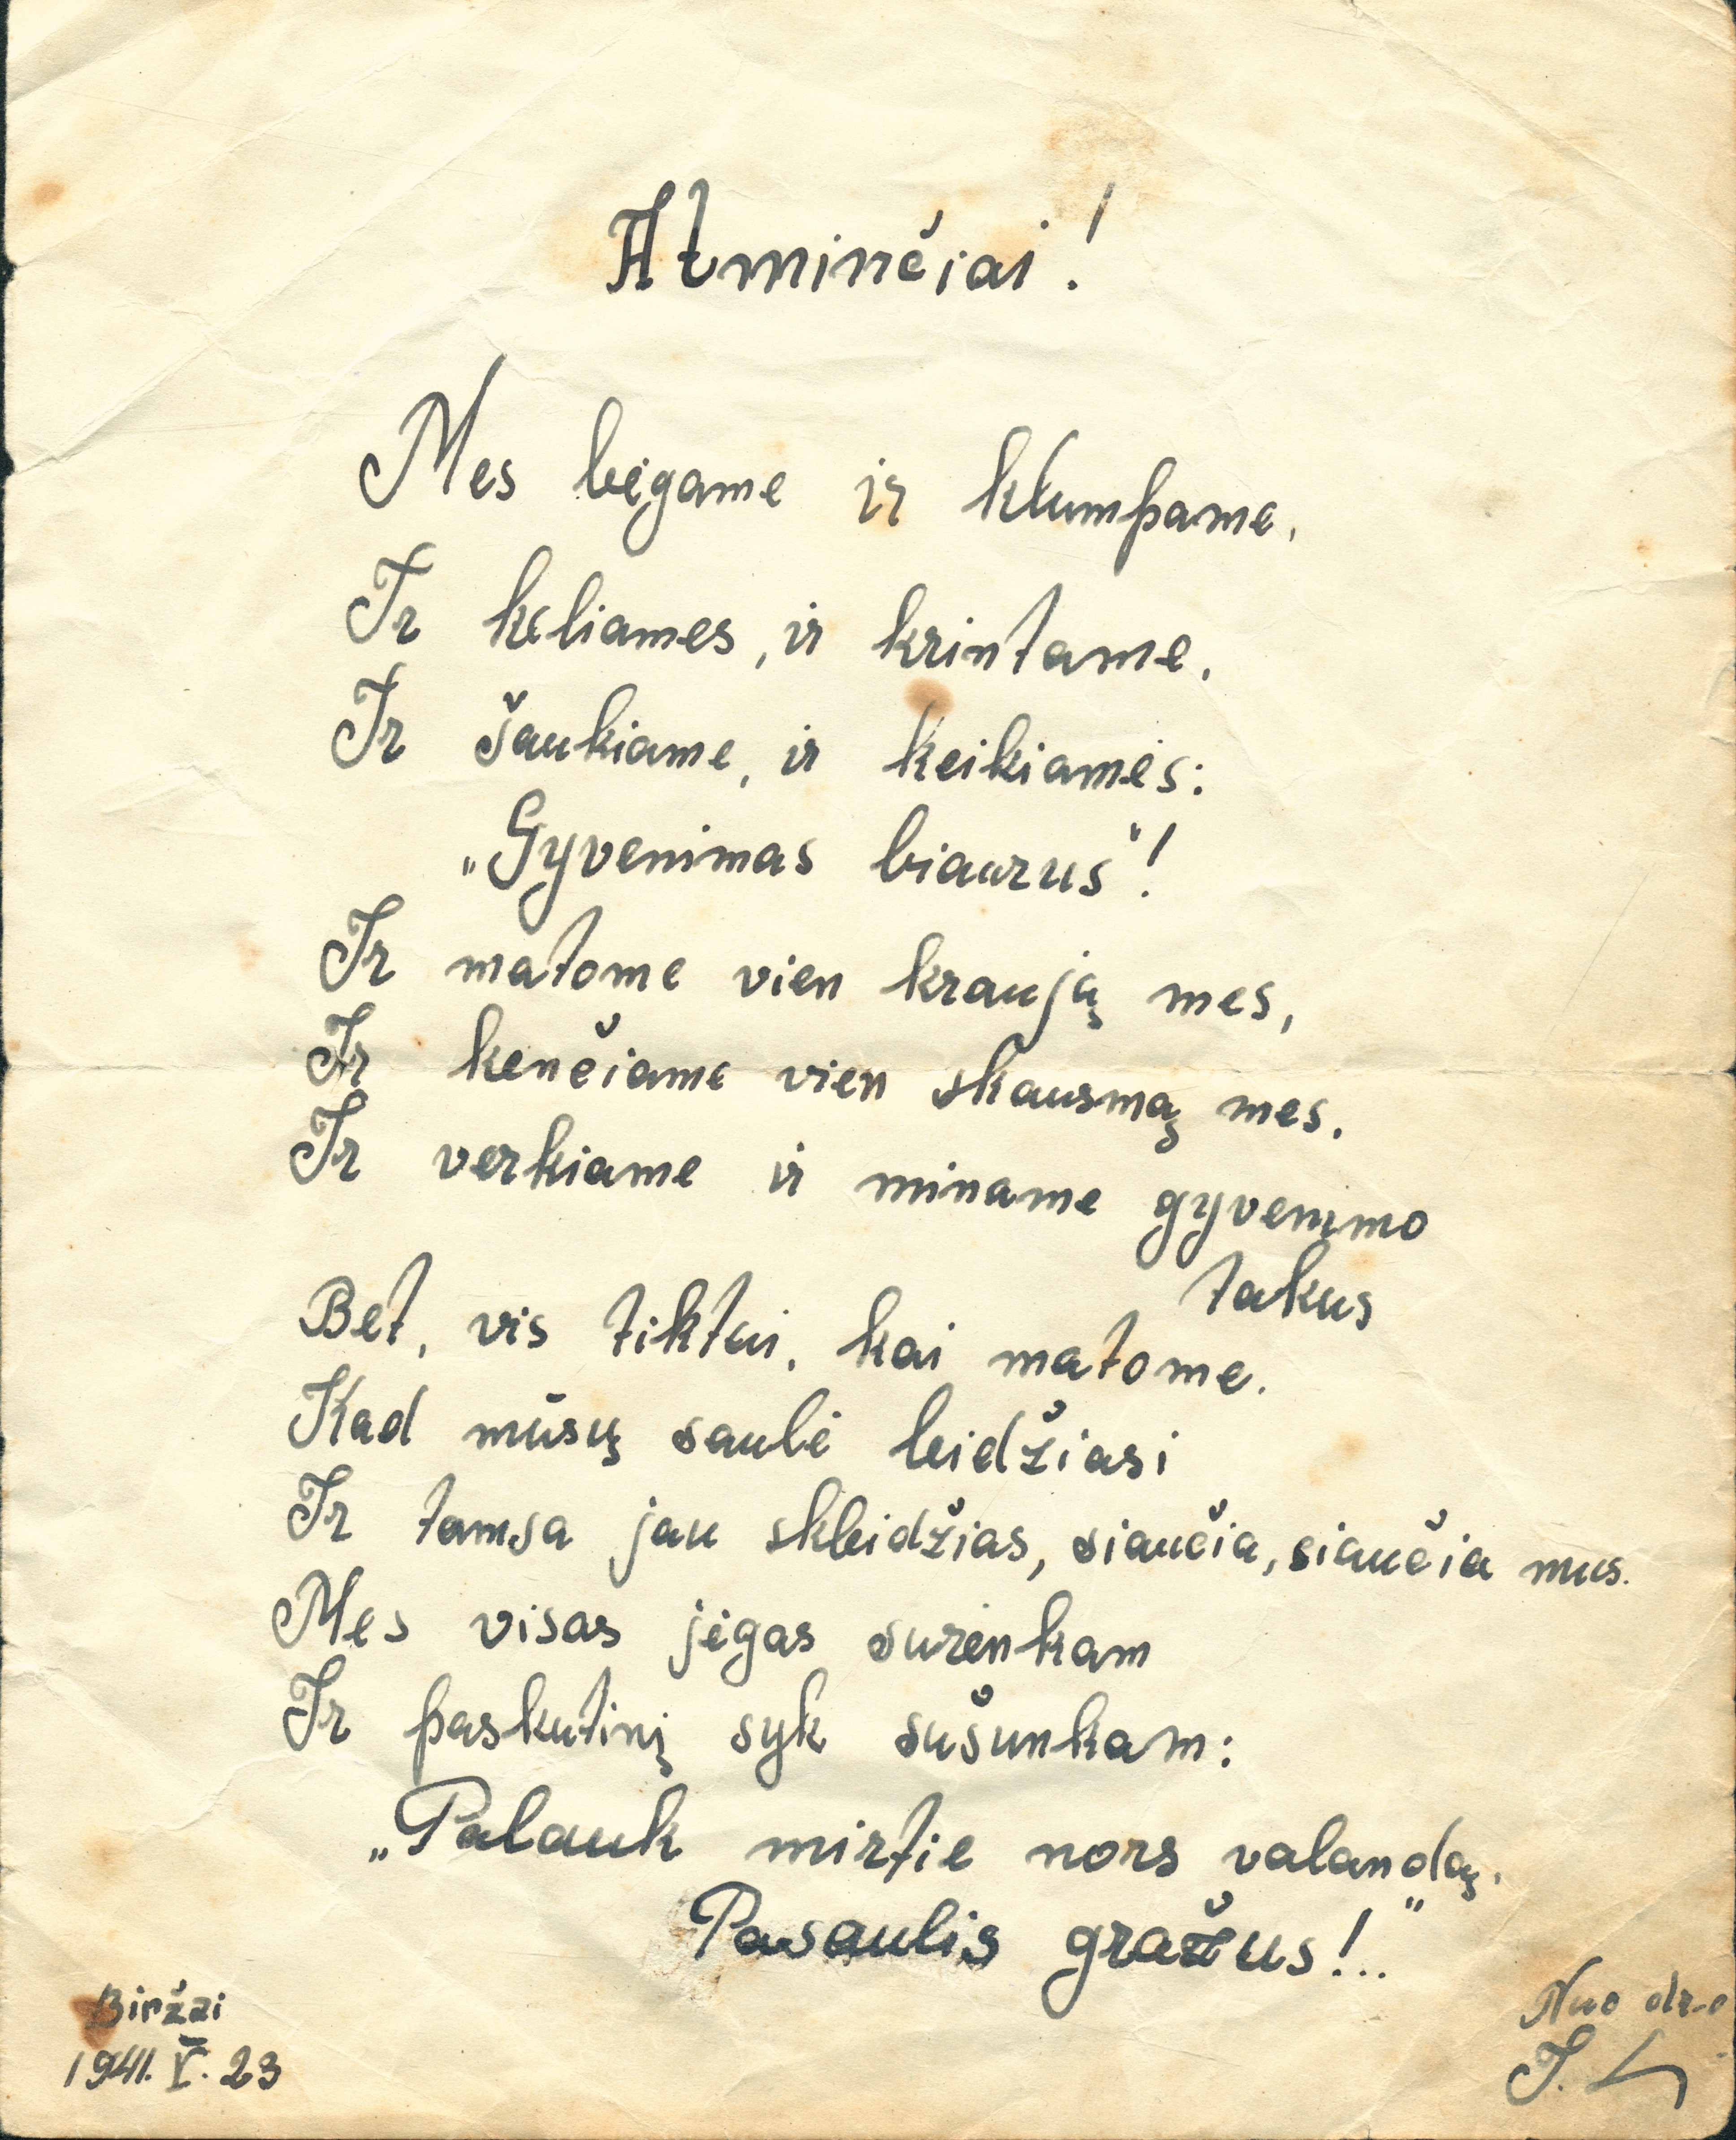 Atminčiai!
Mes bėgame ir klumpame,
Ir keliames, ir krintame,
Ir šaukiame, ir keikiamės:
„Gyvenimas biaurus"!
Ir matome vien kraują mes,
Ir kenčiame vien skausmą mes.
Ir verkiame ir miname gyvenimo
takus
Bet, vis tiktai, kai matome.
Kad mūsų saulė leidžiasi
Ir tamsa jau skleidžias, siaučia, siaučia mus.
Mes visas jėgas surenkam
Ir paskutinį syk sušunkam:
„Palauk mirtie nors valandą.
Pasaulis gražus!.."
Biržai
1941. V. 23
Nuo dr-o
J. L